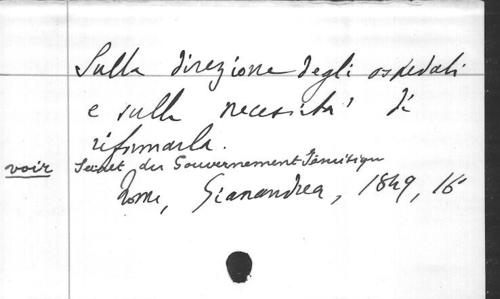 Sulla direzione degli ospedali
e sulla necessità di
riformarla.
voir Secret du Gouvernement
Rome, Gianandrea, 1849, 16°